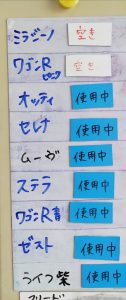 ミラジーノ 空き
ワゴンR ピンク 空き
オッティ 使用中
セレナ 使用中
ムーヴ 使用中
ステラ 使用中
ワゴンR青 使用中
ゼスト 使用中
ライフ紫 使用中
フリード